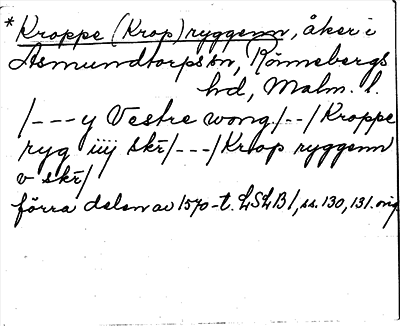 *Kroppe (Krop)ryggenn, åker i
Asmundtorps sn, Rönnebergs
hd, Malm. l.
/---y Vestre wong./--/Kroppe
ryg iiij skr/---/Krop ryggenn
v skr/
förra delen av 1570-t. LSLB1, ss. 130, 131. orig.